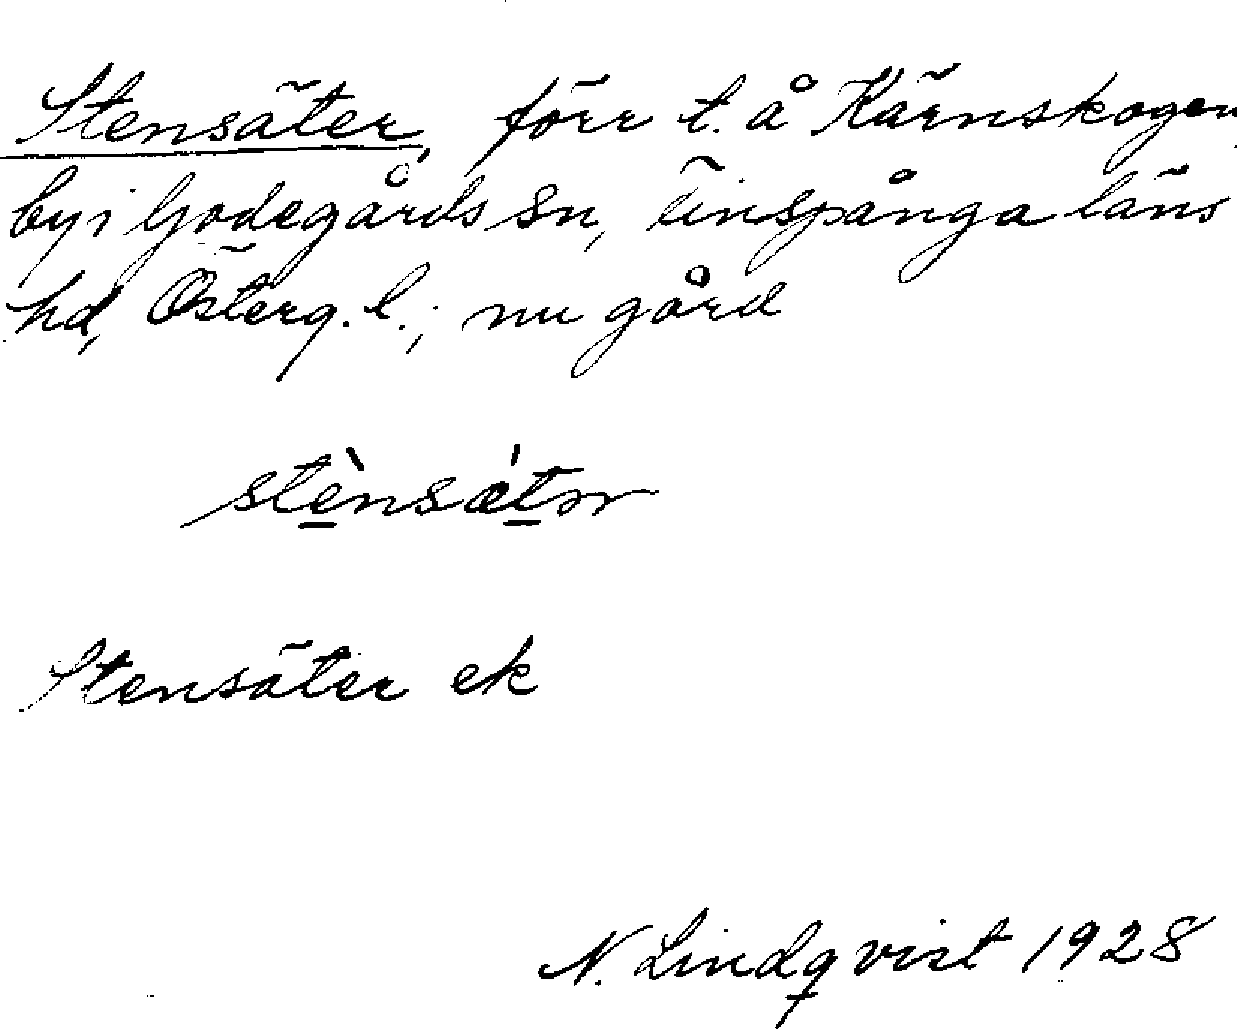 Stensäter, förr t. å Kärnskogen,
by i Godegårds sn, Finspånga läns
hd, Österg. l.; nu gård
stènsǽtər
Stensäter ek
N. Lindqvist 1928